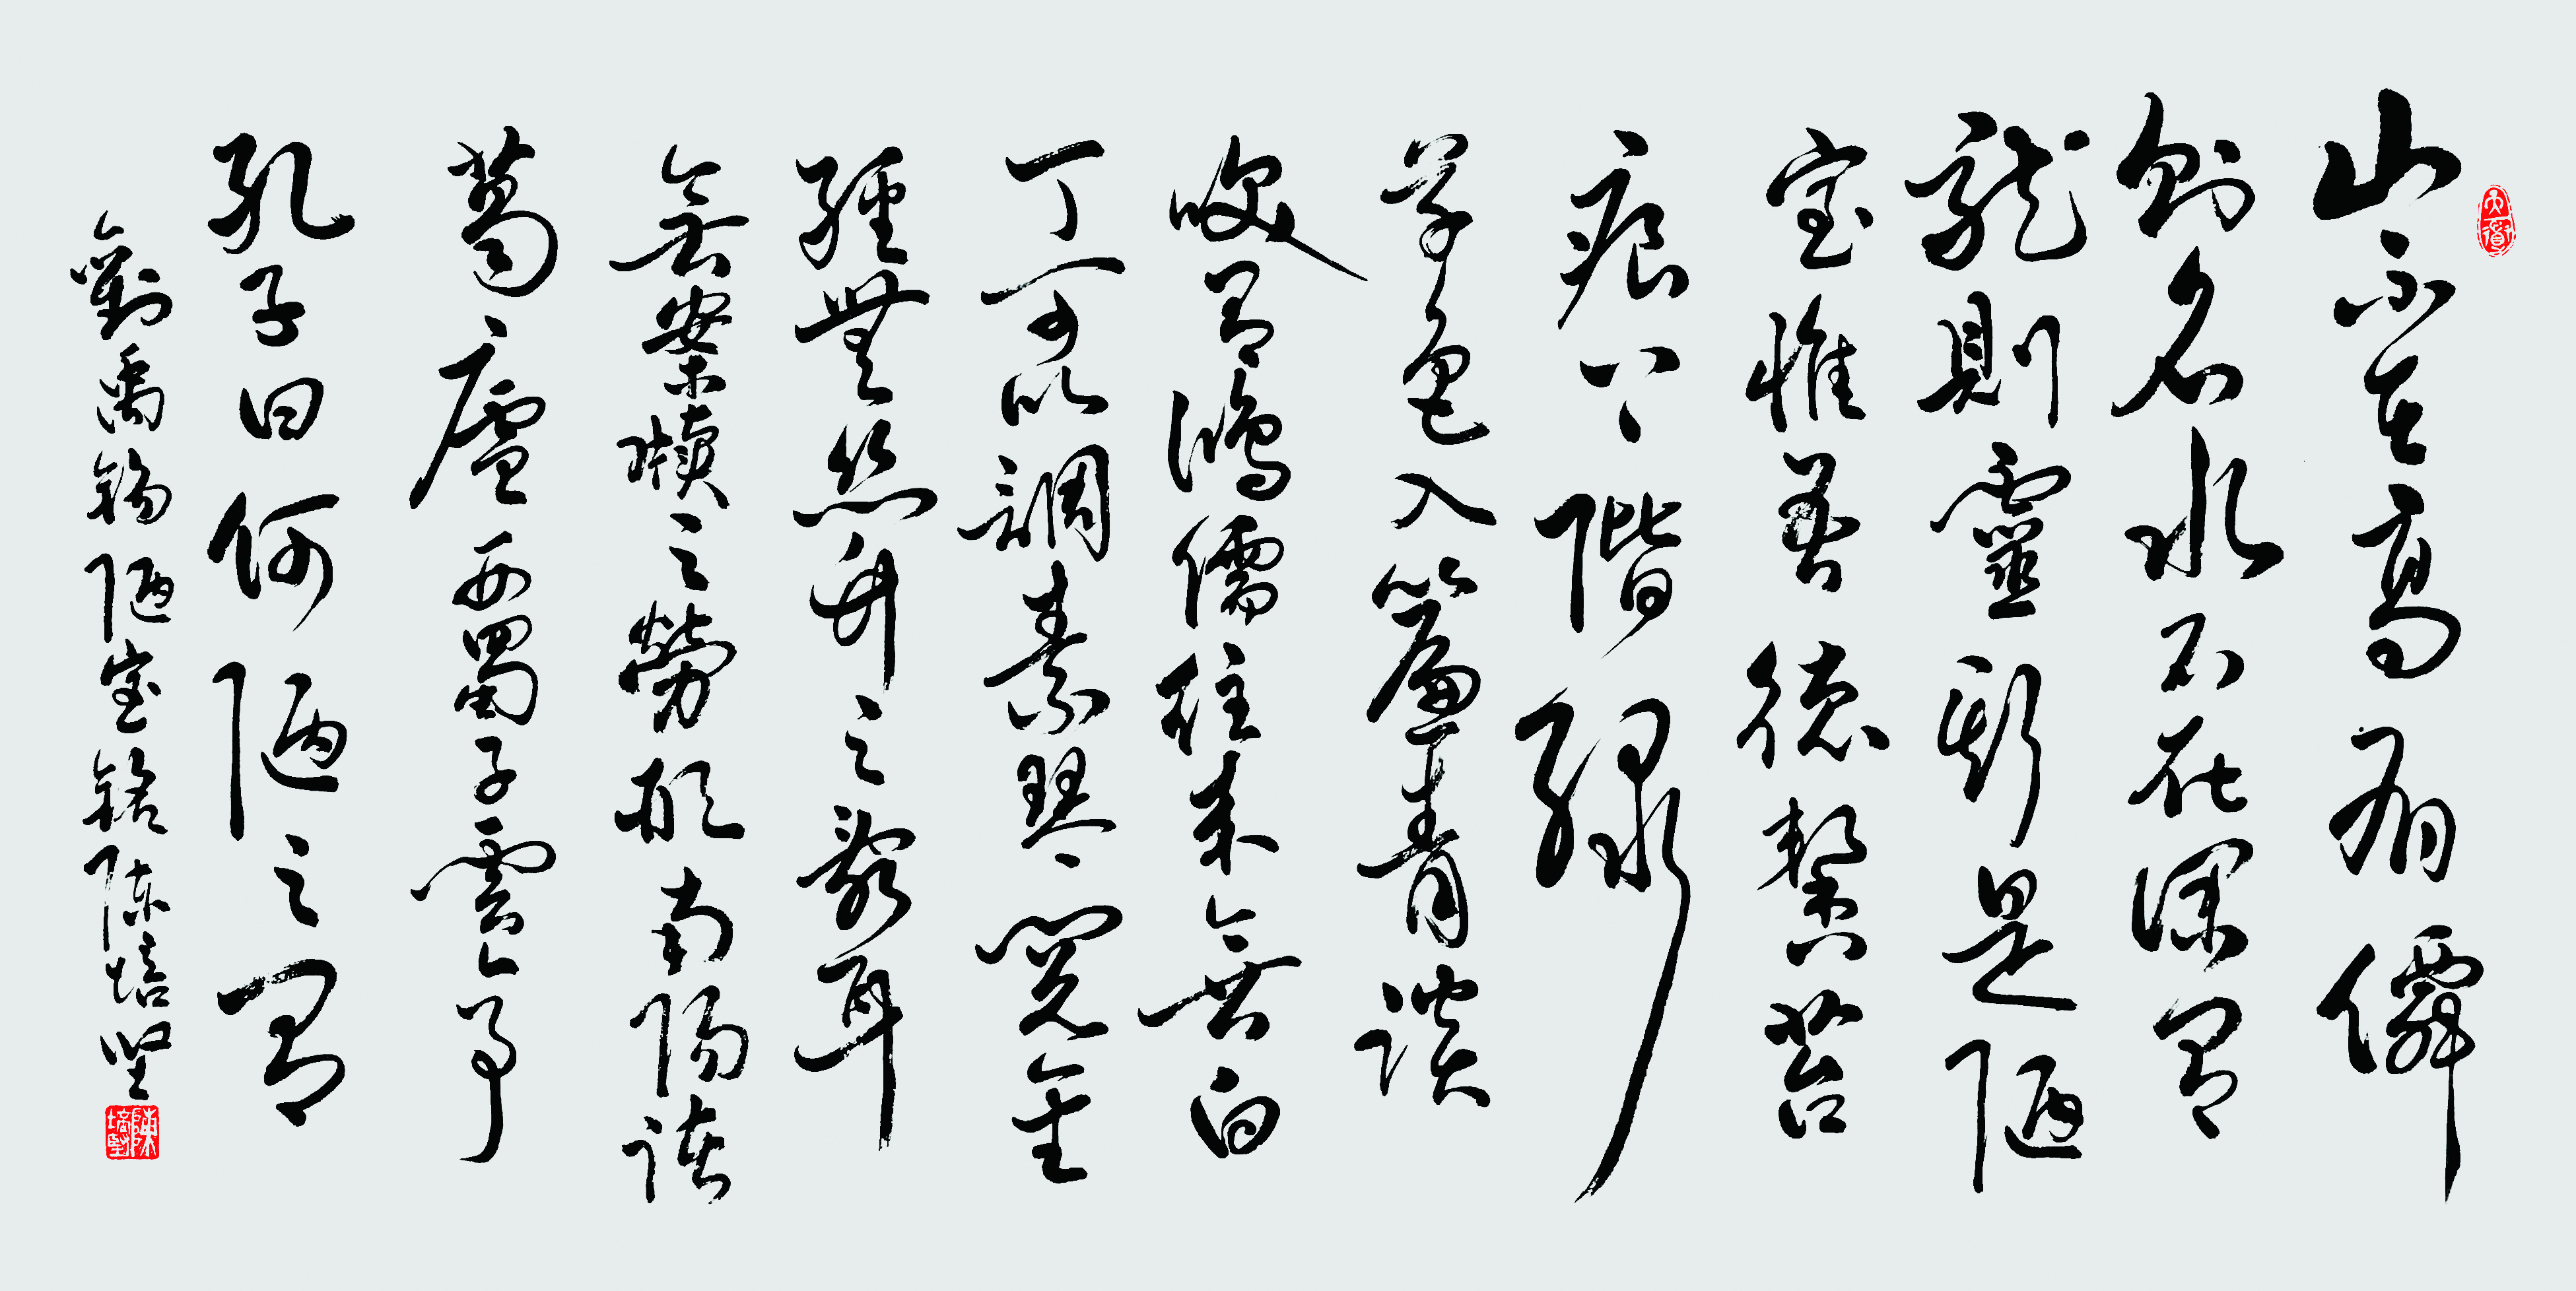 山不在高有僊
則名水不在深有
龍則靈斯是陋
室惟吾德馨苔
痕上階綠
草色入簾青談
咲有鴻儒往來無白
丁可以調素琴閱金
經無絲竹之亂耳
無案牘之勞形南陽諸
葛廬西蜀子雲亭
孔子曰何陋之有
劉禹錫陋室銘陳培堅
陳培堅